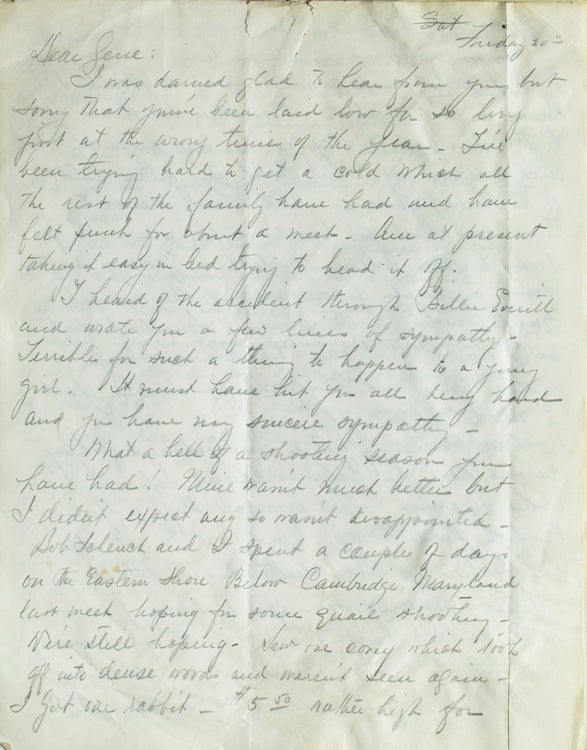 Sat Friday 20th
Dear Gene:
I was darned glad to hear from you but
sorry that you've been laid low for so long
just at the wrong time of the year - I've
been trying hard to get a cold which all
the rest of the family have had and have
felt punk for about a week - Am at present
taking it easy in bed trying to head it off.
I heard of the accident through Billie Everitt
and wrote you a few lines of sympathy -
Terrible for such a thing to happen to a young
girl. It must have hit you all being hard
and you have my sincere sympathy -
What a hell of a shooting season you
have had! Mine wasn't much better but
I didn't expect any so wasn't disappointed -
Bob Schenck and I spent a couple of days
on the Eastern Shore Below Cambridge Maryland
last week hoping for some quail shooting -
We're still hoping - Saw one covey which took
off into dense woods and weren't seen again -
I got one rabbit - $5.50 rather high for